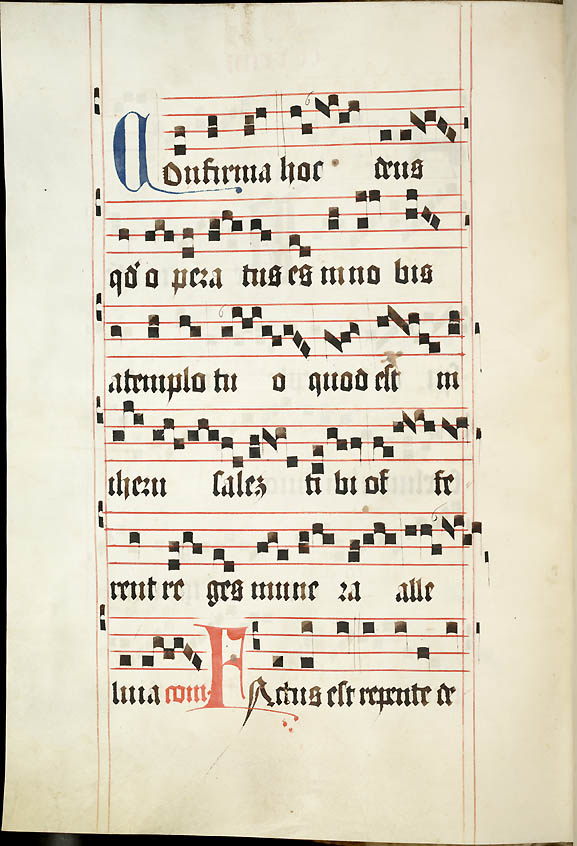 Confirma hoc deus
qd o pera tus es in no bis
a templo tu o quod est in
iherusalez ti bi of fe
rent re ges mune ra alle
luia com Factus est repente de